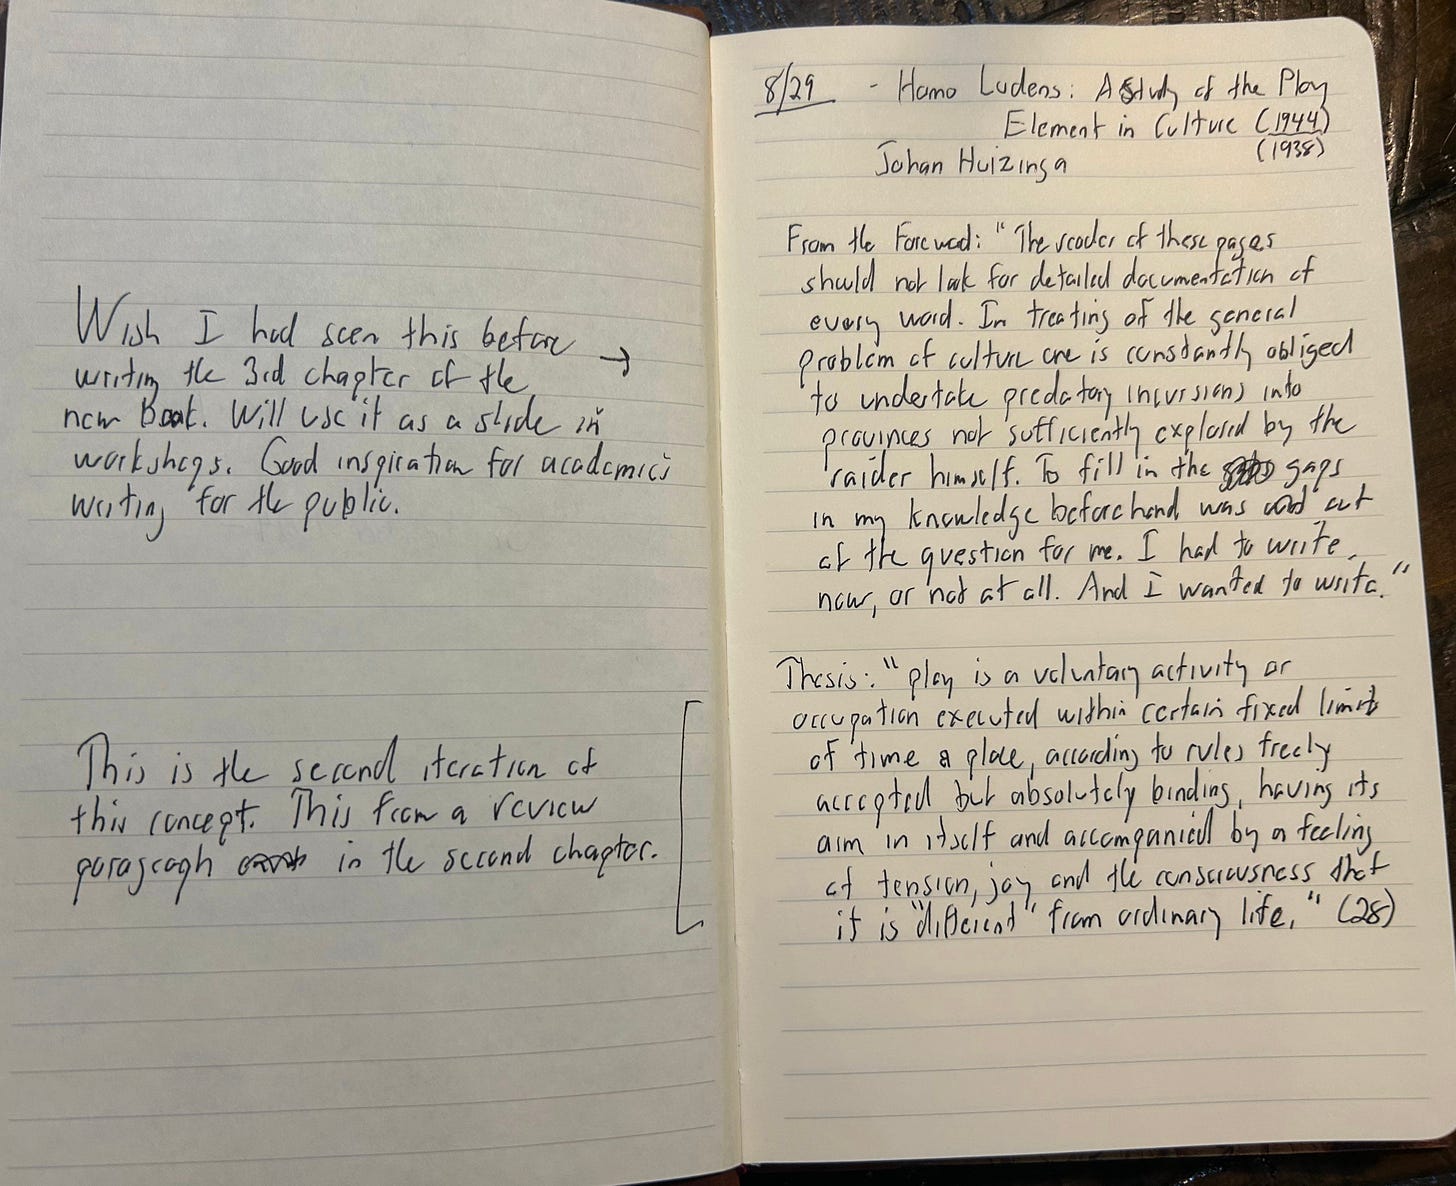 Wish I had seen this before →
writing the 3rd chapter of the
new book. Will use it as a slide in
workshops. Good inspiration for academics
writing for the public.
This is the second iteration of
this concept. This from a review
paragraph in the second chapter.
8/29 - Homo Ludens: A Study of the Play
Element in Culture (1944)
(1938)
Johan Huizinga
From the Foreword: "The reader of these pages
should not look for detailed documentation of
every word. In treating of the general
problem of culture one is constantly obliged
to undertake predatory incursions into
provinces not sufficiently explored by the
raider himself. To fill in the gaps
in my knowledge beforehand was out
of the question for me. I had to write
now, or not at all. And I wanted to write."
Thesis: "play is a voluntary activity or
occupation executed within certain fixed limits
of time & place, according to rules freely
accepted but absolutely binding, having its
aim in itself and accompanied by a feeling
of tension, joy and the consciousness that
it is "different" from ordinary life." (28)